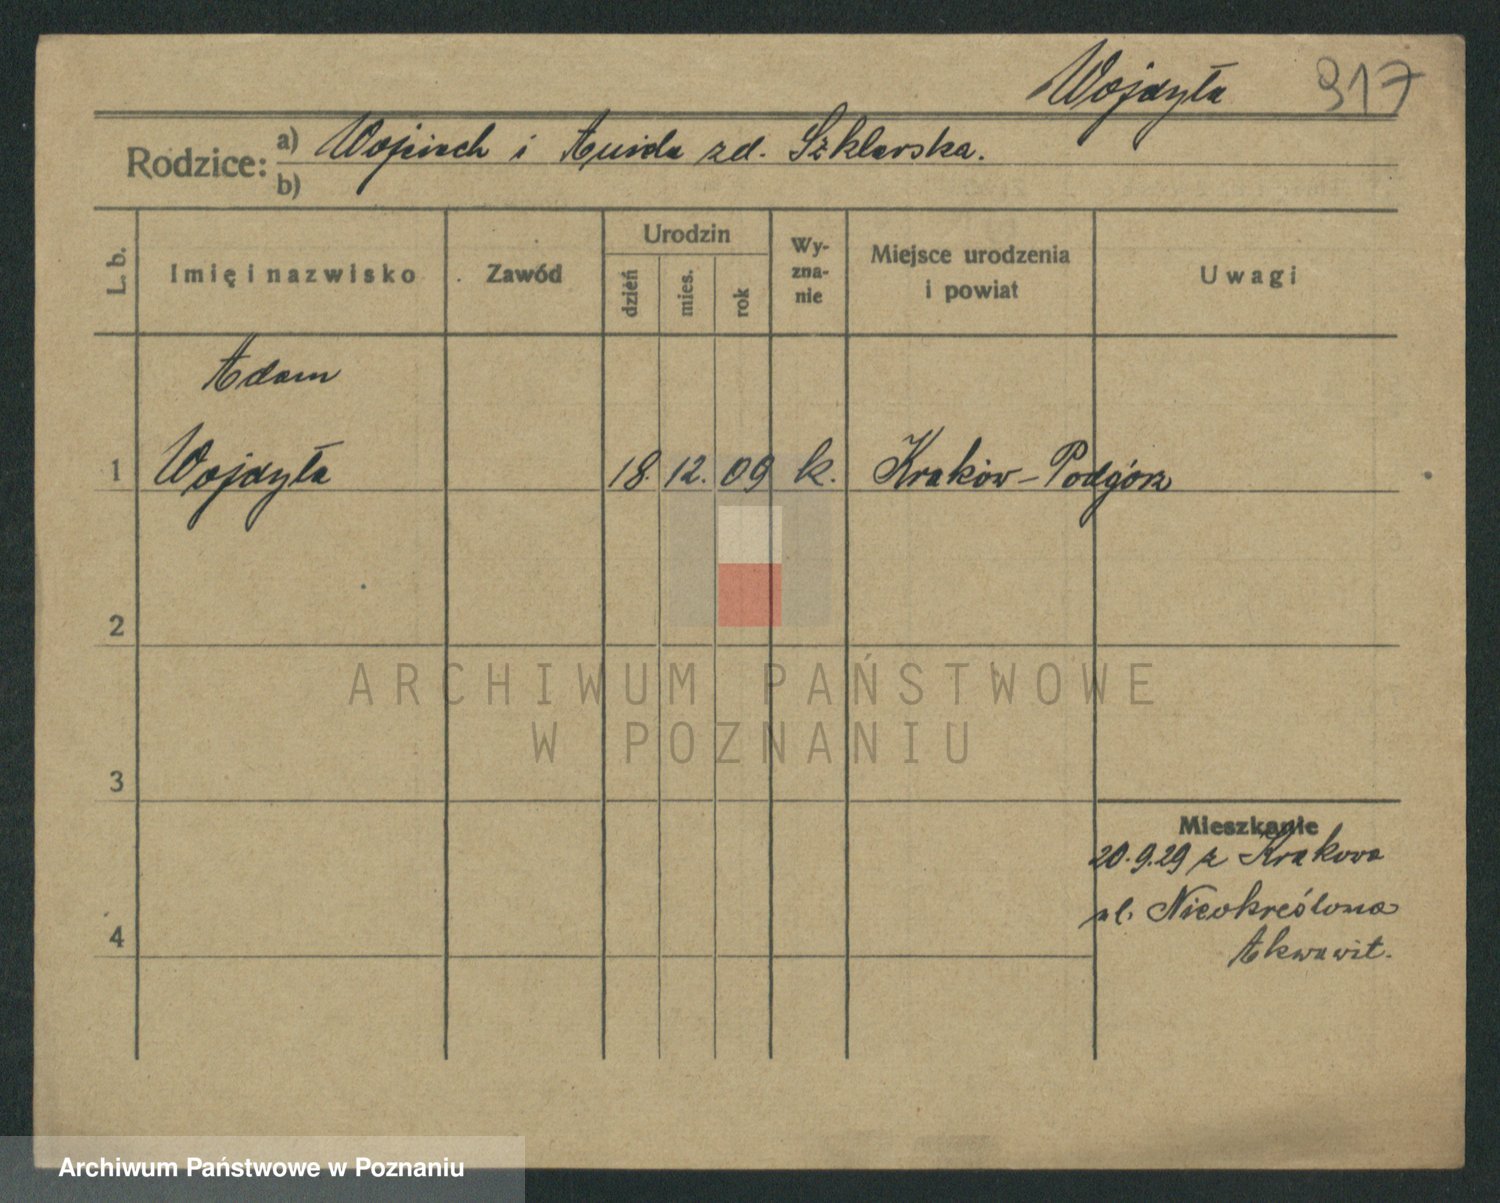 Wojdyła 917
Rodzice: a) Wojciech i Anida zd. Szklarska.
b)
L. b. Imię i nazwisko Zawód Urodzin dzień mies. rok Wy-zna-nie Miejsce urodzenia i powiat Uwagi
Adam
1 Wojdyła 18. 12. 09 k. Kraków-Podgórz
2
ARCHIWUM PAŃSTWOWE
W POZNANIU
3
Mieszkanie
20.9.29 z Krakowa
ul. Nieokreślona
4
Akwawit.
Archiwum Państwowe w Poznaniu